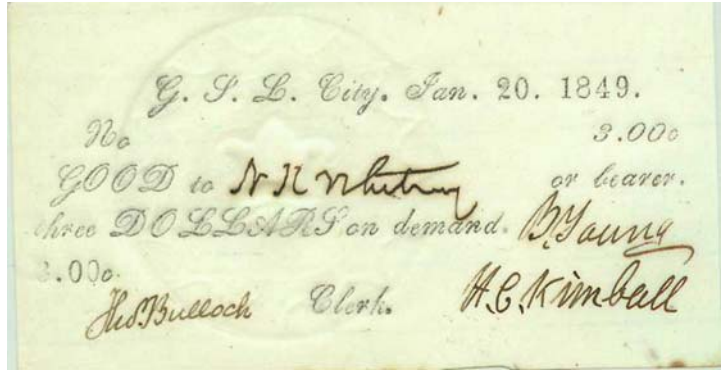 G. S. L. City. Jan. 20. 1849.
No 3.00c
GOOD to N K Whitney or bearer.
three DOLLARS on demand. B. Young
3.00c.
Tho.s Bulloch Clerk. H. C. Kimball